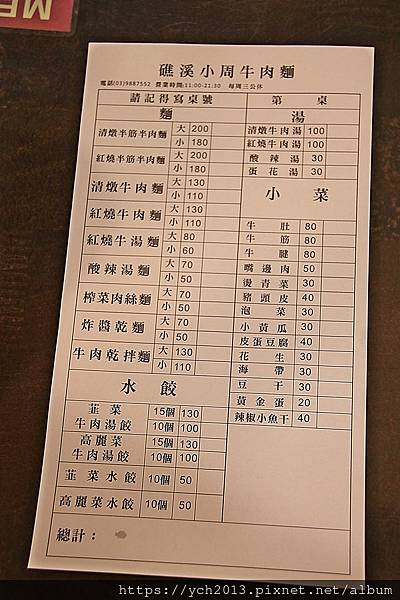 ME
礁溪小周牛肉麵
電話(03)9887552 營業時間:11:00-21:30 每周三公休
請記得寫桌號 第 桌
麵
清燉半筋半肉麵 大 200
小 180
紅燒半筋半肉麵 大 200
小 180
清燉牛肉麵 大 130
小 110
紅燒牛肉麵 大 130
小 110
紅燒牛湯麵 大 80
小 60
酸辣湯麵 大 70
小 50
榨菜肉絲麵 大 70
小 50
炸醬乾麵 大 70
小 50
牛肉乾拌麵 大 130
小 110
水餃
韭菜牛肉湯餃 15個 130
10個 100
高麗菜牛肉湯餃 15個 130
10個 100
韭菜水餃 10個 50
高麗菜水餃 10個 50
總計：
湯
清燉牛肉湯 100
紅燒牛肉湯 100
酸辣湯 30
蛋花湯 30
小菜
牛肚 80
牛筋 80
牛腱 80
嘴邊肉 50
燙青菜 30
豬頭皮 40
泡菜 30
小黃瓜 30
皮蛋豆腐 40
花生 30
海帶 30
豆干 30
黃金蛋 20
辣椒小魚干 40
https://ych2013.pixnet.net/album